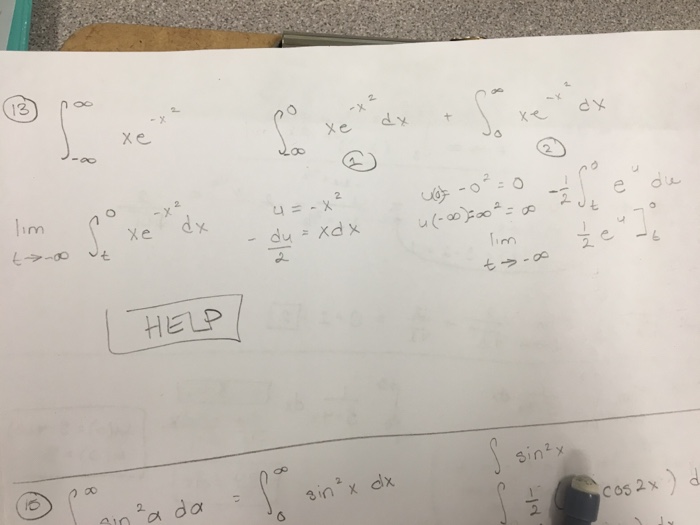 (13) ∫_{-∞}^{∞} xe^{-x²}   ∫_{-∞}^{0} xe^{-x²} dx + ∫_{0}^{∞} xe^{-x²} dx
1   2
lim t→-∞ ∫_{t}^{0} xe^{-x²} dx   u = -x²   u(0)= -0² = 0   -½ ∫_{t}^{0} e^{u} du
-du/2 = xdx   u(-∞)=∞² = ∞
lim t→-∞ ½ e^{u} ]_{t}^{0}
HELP
(15) ∫^{∞} sin²a da = ∫_{0}^{∞} sin²x dx   ∫ sin²x
∫ ½ cos2x) d